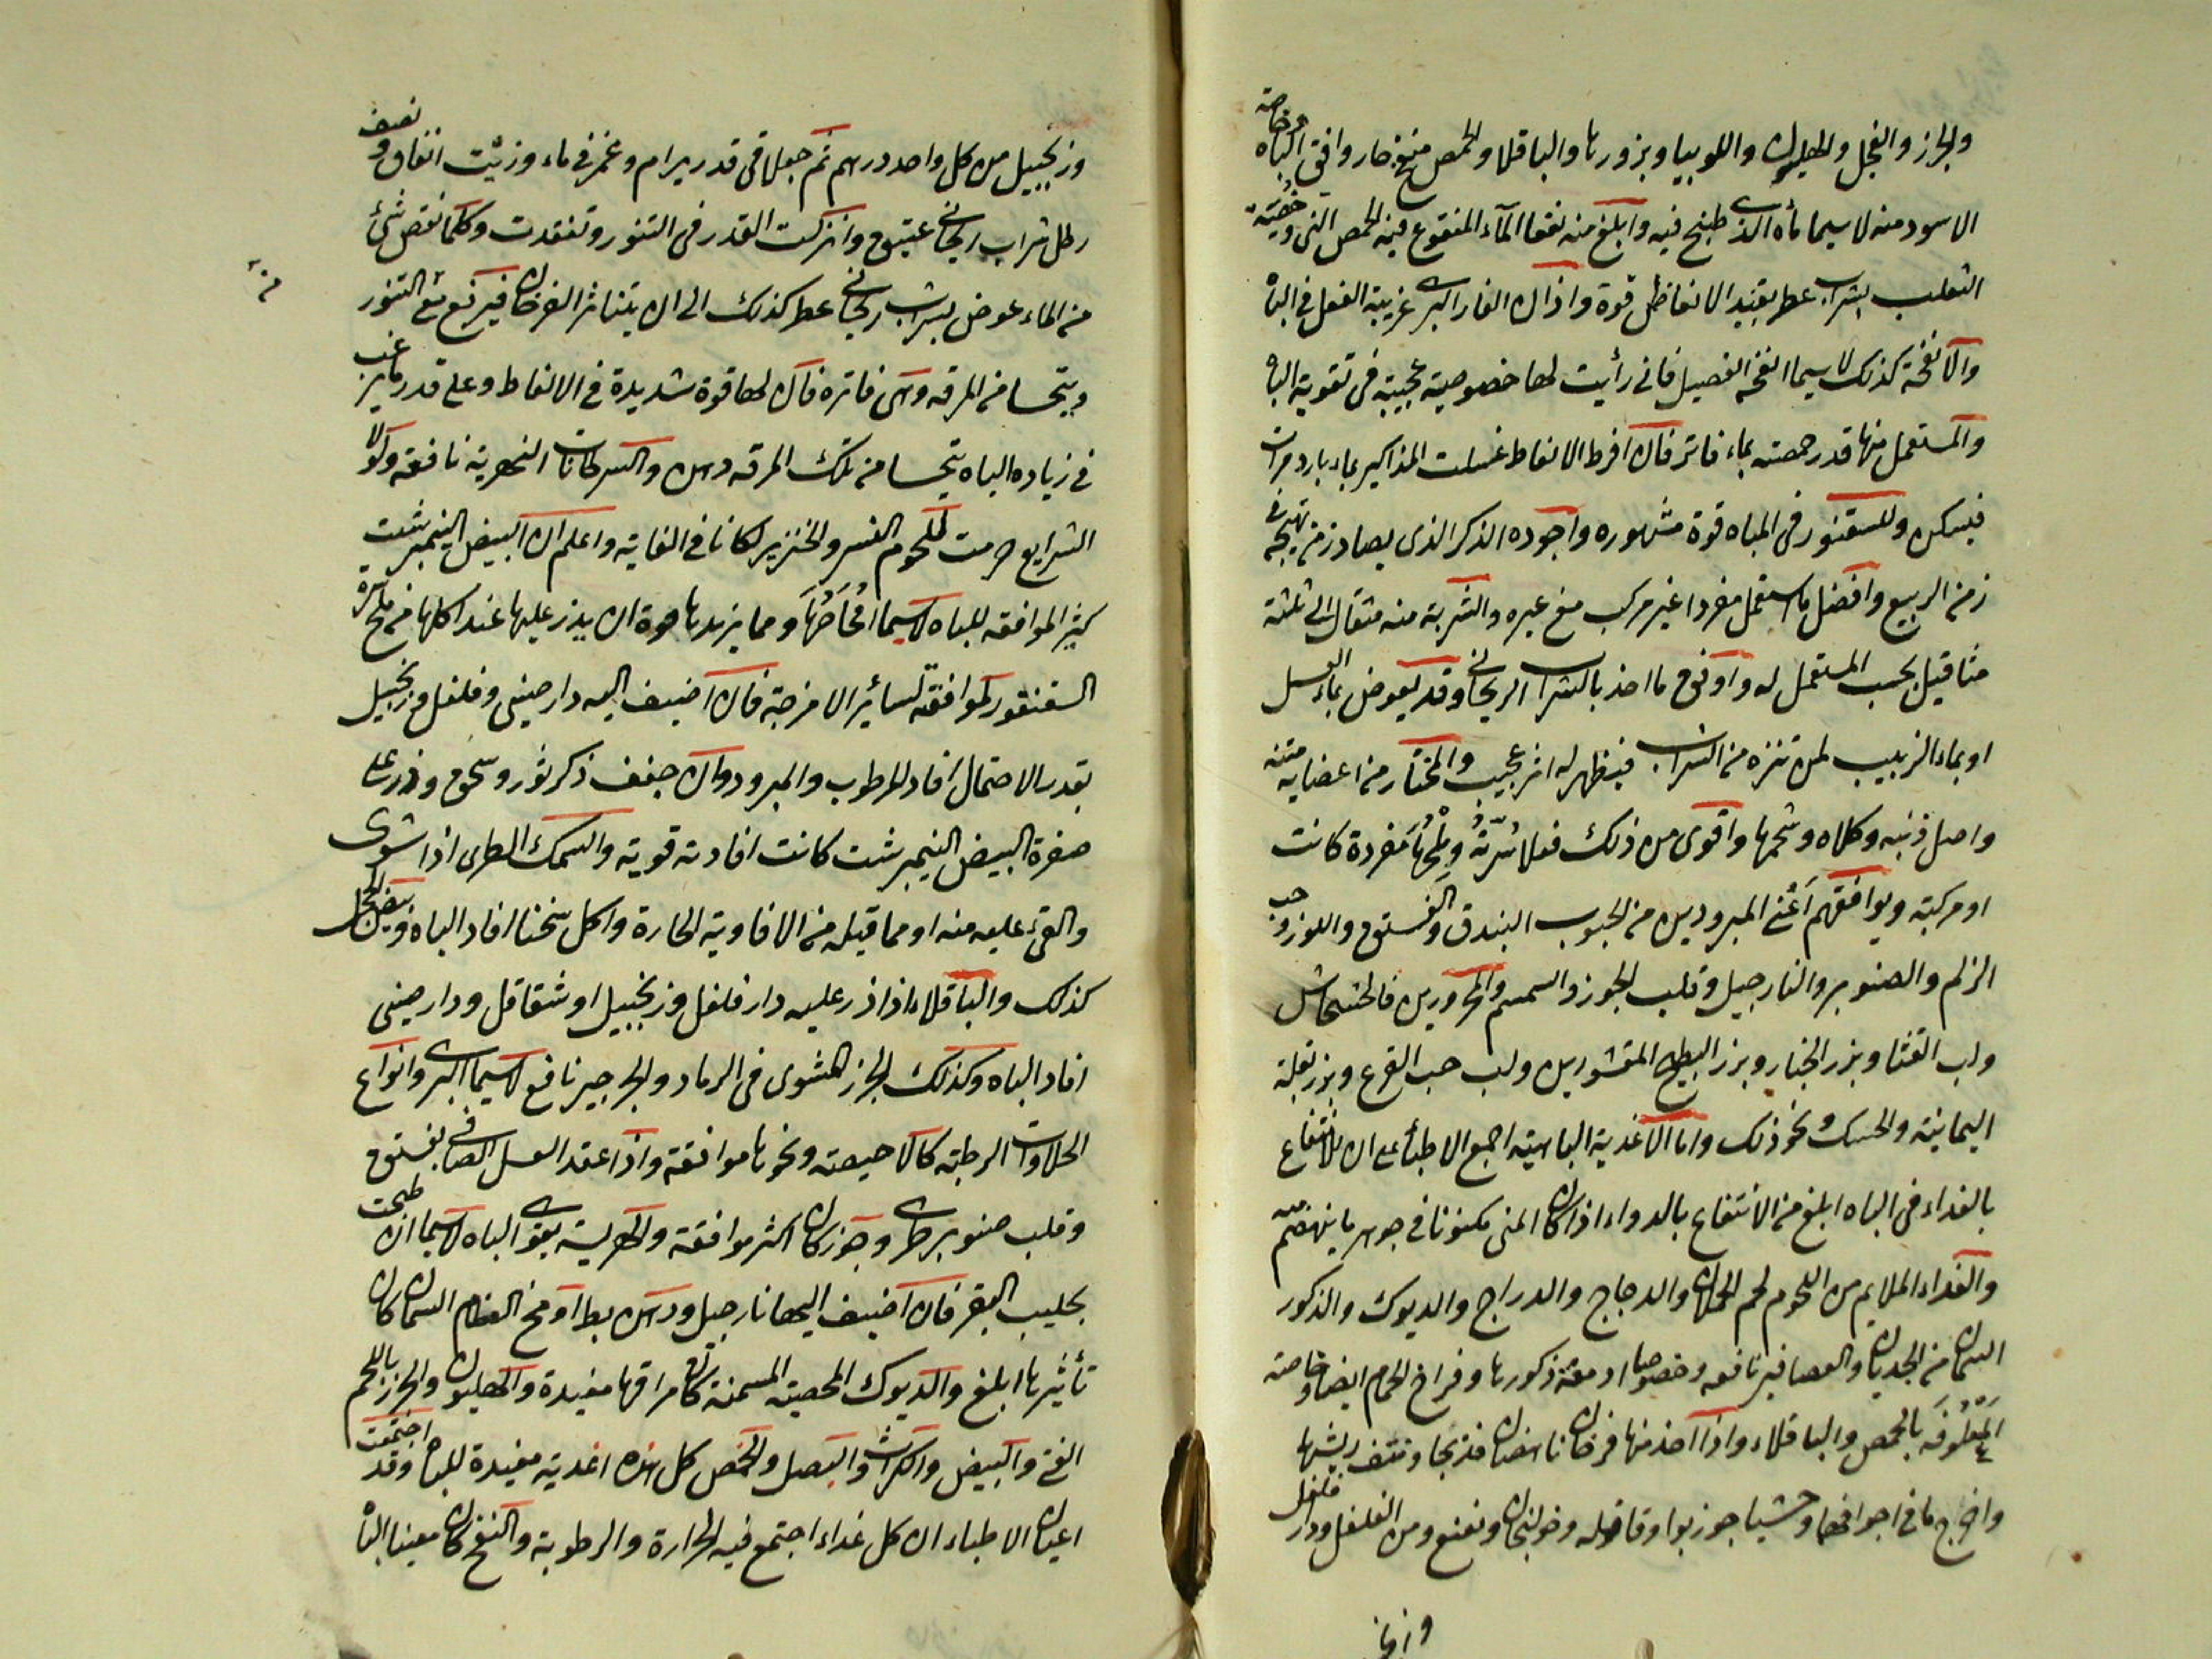 والجزر والفجل والهليون واللوبيا وبزورها والباقلا والحمص منفخ حار وافق الباه وخاصة
الاسود منه لا سيما ماه الذى طبخ فيه وابلغ منه نفعا الماء المنقوع فيه الحمص النى وخصية
الثعلب بشراب عطر يفيد الانعاظ قوة واذان الفار البرى غريبة الفعل فى الباه
والانفحة كذلك لا سيما انفحة الفصيل فانى رأيت لها خصوصية عجيبة فى تقوية الباه
والمستعمل منها قدر حمصة بماء فاتر فان افرط الانعاظ غسلت المذاكير بماء بارد مرات
فيسكن وللسقنقور فى الباه قوة مشهوره واجوده الذكر الذى يصاد زمن تهيجه فى
زمن الربيع وافضل ما استعمل مفردا غير مركب مع غيره والشربة منه مثقال الى ثلثة
مثاقيل بحسب المستعمل له واوفق ما اخذ بالشراب الريحانى وقد يعوض بماء العسل
او بماء الزبيب لمن تنزه من الشراب فيظهر له اثر عجيب والمختار من اعضايه متنه
واصل ذنبه وكلاه وشحمها واقوى من ذلك فعلا سرته وملحها مفردة كانت
او مركبة ويوافقهم اعنى المبرودين من الحبوب البندق والفستق واللوز وحب
الزلم والصنوبر والنارجيل وقلب الجوز والسمسم والمحرورين فالخشخاش
ولب القثا وبزر الخيار وبزر البطيخ المقشورين ولب حب القرع وبزر بقلة
اليمانية والحسك ونحو ذلك واما الاغذية الباهية اجمع الاطبأ على ان الانتفاع
بالغداء فى الباه ابلغ من الانتفاع بالدواء اذ كان المنى مكنونا فى جوهر ما ينهضم منه
والغداء الملايم من اللحوم لحم الحملان والدجاج والدراج والديوك والذكور
السمان من الجديان والعصافير نافعه وخصوصا ادمغة ذكورها وفراخ الحمام ايضا وخاصة
المعلوفة بالحمص والباقلاء واذا اخذ منها فرخان ناهضان فذبحا ونتف ريشها
واخرج ما فى اجوافهما وحشيا جوز بوا وقاقله وخولنجان ونعنع ومن الفلفل ودار فلفل
وزنجبيل
وزنجبيل من كل واحد درهم ثم جعلا فى قدر برام وغمر فى ماء وزيت انفاق ونصف
رطل شراب ريحانى عتيق وانزلت القدر فى التنور وتفقدت وكلما نقص شئ
من الماء عوض بشراب ريحانى عطر كذلك الى ان يتناثر الفرخان فيرفع من التنور
ويتحسا من المرقه وهى فاتره فان لها قوة شديدة فى الانعاظ وعلى قدر ما يرغب
فى زياده الباه يتحسا من تلك المرقه دهن والسرطانات النهرية نافعه ولولا
الشرايع حرمت للحوم الفرس والخنزير لكانا فى الغاية واعلم ان البيض النيمبرشت
كثير الموافقه للباه لا سيما امحاضها ومما يزيدها قوة ان يذر عليها عند اكلها من ملح سرة
السقنقور لموافقته لسائر الامزجة فان اضيف اليه دارصينى وفلفل وزنجبيل
بقدر الاحتمال افاد المرطوب والمبرود وان جفف ذكر ثور وسحق وذر على
صفرة البيض النيمبرشت كانت افادته قوية والسمك الطرى اذا شوى
والقى عليه منه او مما قبله من الافاوية الحارة واكل سخنا افاد الباه وبيض الحجل
كذلك والباقلاء اذا ذر عليه دار فلفل وزنجبيل او شقاقل ودارصينى
افاد الباه وكذلك الجزر المشوى فى الرماد والجرجير نافع لا سيما البرى وانواع
الحلاوات الرطبة كالاخبصة ونحوها موافقة واذا عقد العسل الصافى بفستق
وقلب صنوبر طرى وجوز كان اكثر موافقة والهريسة يقوى الباه لا سيما ان طبخت
بحليب البقر فان اضيف اليها نارجيل ودهن بط او مخ العظام السمان كان
تأثيرها ابلغ والديوك المخصية المسمنة كان مراقها مفيدة والهليون والجزر باللحم
الفتى والبيض والكراث والبصل والحمص كل هذه اغدية مفيدة للباه وقد اجتمعت
اعيان الاطباء ان كل غداء اجتمع فيه الحرارة والرطوبة والنفخ كان معينا الباه